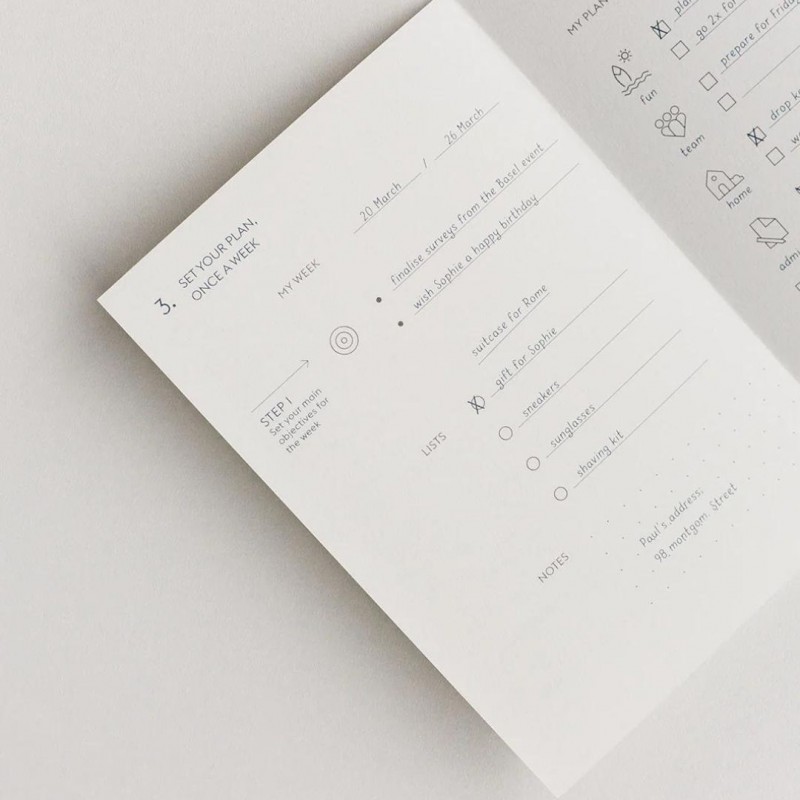 3. SET YOUR PLAN,
ONCE A WEEK
MY WEEK
20 March / 26 March
STEP 1
Set your main
objectives for
the week
finalise surveys from the Basel event
wish Sophie a happy birthday
LISTS
suitcase for Rome
gift for Sophie
sneakers
sunglasses
shaving kit
NOTES
Paul's address:
98, montgom. Street
MY PLAN
go 2x for
prepare for
drop
fun
team
home